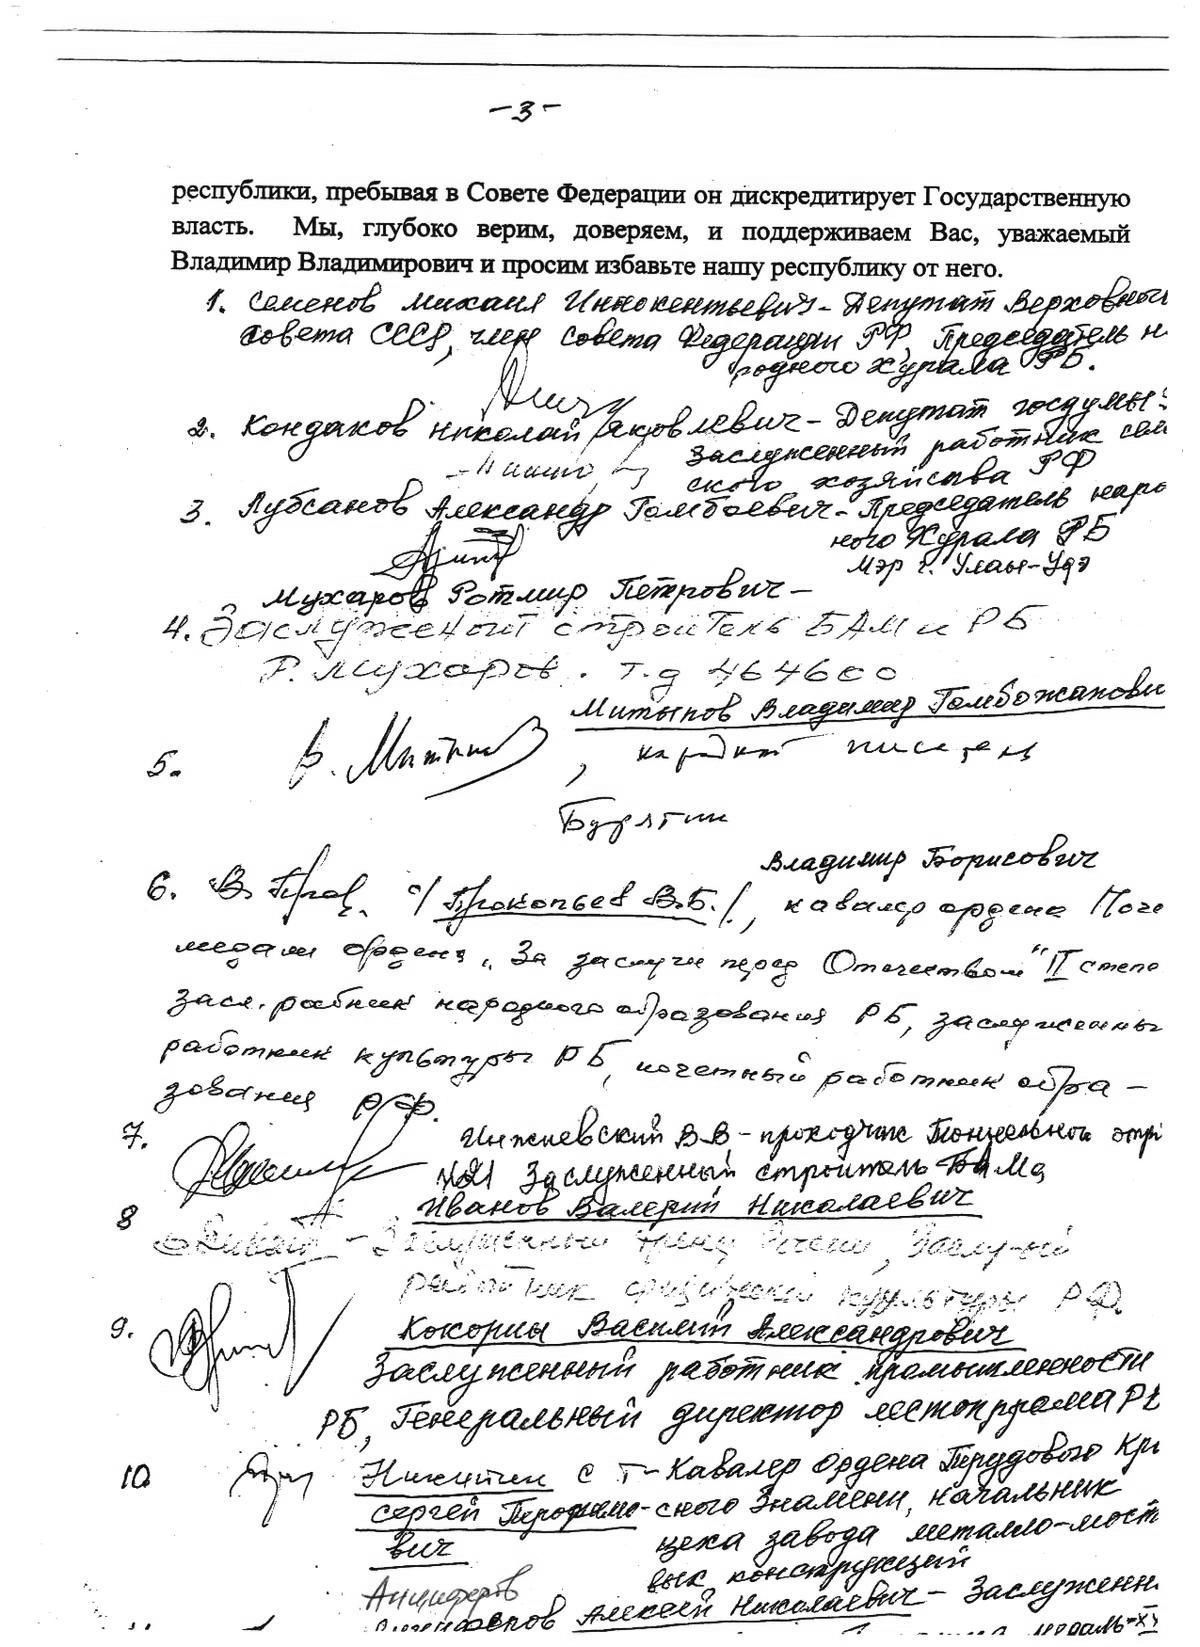 -3-
республики, пребывая в Совете Федерации он дискредитирует Государственную
власть. Мы, глубоко верим, доверяем, и поддерживаем Вас, уважаемый
Владимир Владимирович и просим избавьте нашу республику от него.
1. Семенов Михаил Иннокентьевич - Депутат Верховного
Совета СССР, член Совета Федерации РФ, Председатель н
родного Хурала РБ.
2. Кондаков Николай Яковлевич - Депутат госдумы
Заслуженный работник сель
ского хозяйства РФ
3. Лубсанов Александр Гомбоевич - Председатель наро
ного Хурала РБ
Мэр г. Улан-Удэ
Мухаров Ротмир Петрович -
4. Заслуженый строитель БАМ и РБ
Р. Мухаров. т.д 464600
Митыпов Владимир Гомбожапови
5. В. Митыпов, народный писатель
Бурятии
Владимир Борисович
6. /Прокопьев В.Б./, кавалер ордена Поче
медали ордена "За заслуги перед Отечеством" II степе
засл. рабник народного образования РБ, заслуженны
работник культуры РБ, почетный работник обра-
зования РФ.
7. Инжиевский В В - проходчик Тоннельного отр
Заслуженный строитель БаМа
8 Иванов Валерий Николаевич
- Заслуженный тренер, Заслу-ый
работник физической культуры РФ.
9. Кокорин Василий Александрович
Заслуженный работник промышленности
РБ, Генеральный директор
10 Никитин с т - Кавалер Ордена Трудового Кр
Сергей Трофимо- сного Знамени, начальник
вич цеха завода металло-мост
вых конструкций
Анциферов
Алексей Николаевич - Заслуженн